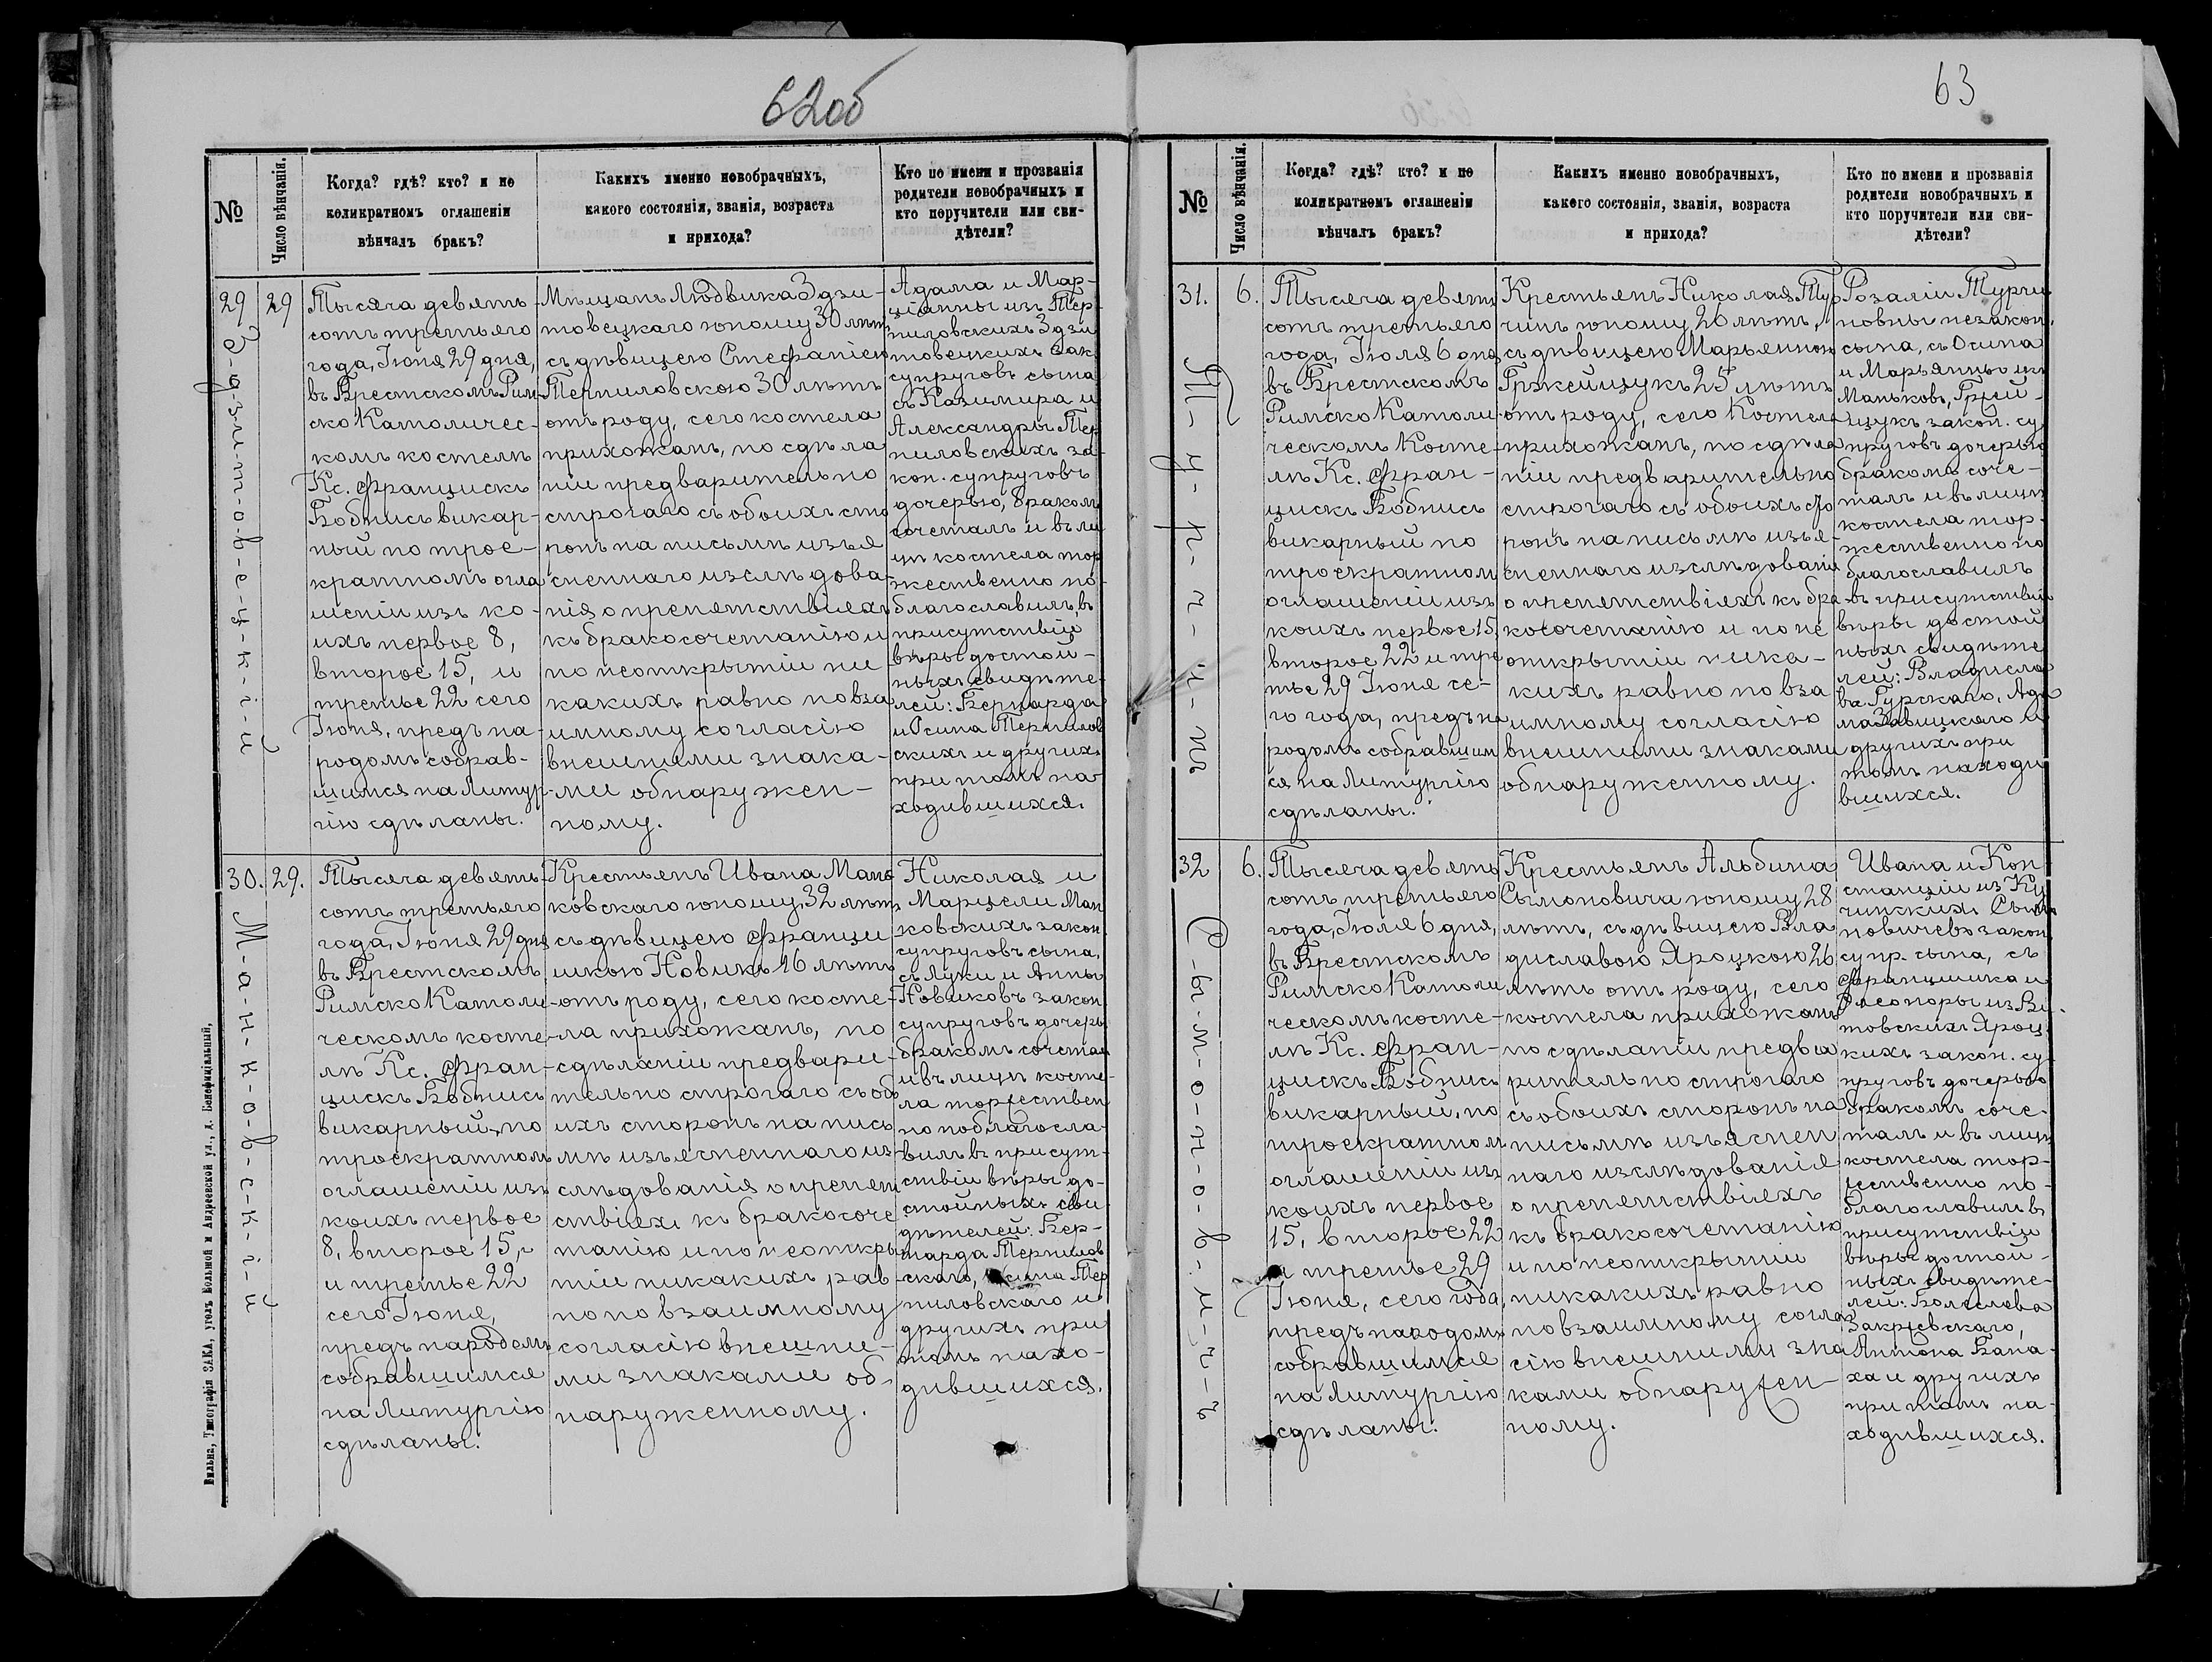 62об
№
Число вѣнчанія.
Когда? гдѣ? кто? и по
коликратномъ оглашеніи
вѣнчалъ бракъ?
Какихъ именно новобрачныхъ,
какого состоянія, званія, возраста
и прихода?
Кто по имени и прозванія
родители новобрачныхъ и
кто поручители или сви-
дѣтели?
29
З-д-з-и-т-о-в-е-ц-к-і-й
29
Тысяча девять-
сотъ третьяго
года, Іюня 29 дня,
въ Брестскомъ Рим-
ско Католичес-
комъ костелѣ
Кс. Францискъ
Бобнисъ викар-
ный по трое-
кратномъ огла
шеніи изъ ко-
ихъ первое 8,
второе 15, и
третье 22 сего
Іюня, предъ на-
родомъ собрав-
шимся на Литур-
гію сдѣланы.
Мѣщанъ Людвика Здзи-
товецкаго юношу 30 лѣтъ
съ дѣвицею Стефаніею
Терпиловскою 30 лѣтъ
отъ роду, сего костела
прихожанъ, по сдѣла
ніи предварительно
строгаго съ обоихъ сто
ронъ на письмѣ изъя
сненнаго изслѣдова-
нія о препятствіяхъ
къ бракосочетанію и
по неоткрытіи ни
какихъ равно по вза
имному согласію
внешними знака-
ми обнаружен-
ному.
Адама и Мар-
ціанны изъ Тер-
пиловскихъ Здзи
товецкихъ зак.
супруговъ сына
съ Казимира и
Александры Тер
пиловскихъ за-
кон. супруговъ
дочерью, бракомъ
сочеталъ и въ ли
цѣ костела тор
жественно по-
благославилъ, въ
присутствіи
вѣры достой-
ныхъ свидѣте-
лей: Бернарда
и Осипа Терпилов
скихъ и другихъ
при томъ на-
ходившихся.
30.
М-а-н-к-о-в-с-к-і-й
29.
Тысяча девять-
сотъ третьяго
года, Іюня 29 дня
въ Брестскомъ
Римско Католи-
ческомъ косте-
лѣ Кс. Фран-
цискъ Бобнисъ
викарный, по
троекратномъ
оглашеніи изъ
коихъ первое
8, второе 15,
и третье 22
сего Іюня,
предъ народомъ
собравшимся
на Литургію
сдѣланы.
Крестьянъ Ивана Мань
ковскаго юношу 32 лѣтъ
съ дѣвицею Франци
шкою Новикъ 16 лѣтъ
отъ роду, сего косте-
ла прихожанъ, по
сдѣланіи предвари-
тельно строгаго съ обо
ихъ сторонъ на пись
мѣ изъясненнаго из
слѣдованія о препят
ствіяхъ къ бракосоче
танію и по неоткры
тіи никакихъ рав
но по взаимному
согласію внешни-
ми знаками об-
наруженному.
Николая и
Марцели Ман
ковскихъ закон.
супруговъ сына,
съ Луки и Анны
Новиковъ закон.
супруговъ дочерью
бракомъ сочеталъ
и въ лицѣ косте-
ла торжествен
но поблагосла-
вилъ въ присут-
ствіи вѣры до-
стойныхъ сви
дѣтелей: Бер-
нарда Терпилов
скаго, Осипа Тер
пиловскаго и
другихъ при
томъ нахо-
дившихся.
Вильна, Типографія ЗАКА, уголъ Большой и Андреевской ул., д. Бенефиціальный.
63
№
Число вѣнчанія.
Когда? гдѣ? кто? и по
коликратномъ оглашеніи
вѣнчалъ бракъ?
Какихъ именно новобрачныхъ,
какого состоянія, званія, возраста
и прихода?
Кто по имени и прозванія
родители новобрачныхъ и
кто поручители или сви-
дѣтели?
31.
Т-у-р-ч-и-нъ
6.
Тысяча девять
сотъ третьяго
года, Іюля 6 дня
въ Брестскомъ
Римско Католи-
ческомъ Косте-
лѣ Кс. Фран-
цискъ Бобнисъ
викарный по
троекратномъ
оглашеніи изъ
коихъ первое 15,
второе 22 и тре
тье 29 Іюня се-
го года, предъ на
родомъ собравшим
ся на Литургію
сдѣланы.
Крестьянъ Николая Тур
чинъ юношу 20 лѣтъ,
съ дѣвицею Марьянною
Гржейщукъ 25 лѣтъ
отъ роду, сего Костела
прихожанъ, по сдѣла
ніи предварительно
строгаго съ обоихъ сто
ронъ на письмѣ изъя-
сненнаго изслѣдованія
о препятствіяхъ къ бра
косочетанію и по не
открытіи ника-
кихъ равно по вза
имному согласію
внешними знаками
обнаруженному.
Розаліи Турчи
новны незакон.
сына, съ Осипа
и Марьянны изъ
Маньковъ, Гржей-
щукъ закон. су
пруговъ дочерью
бракомъ соче-
талъ и въ лицѣ
костела тор-
жественно по
благославилъ
въ присутствіи
вѣры достой
ныхъ свидѣте
лей: Владисла
ва Гурскаго, Ада
ма Завицкаго и
другихъ при
томъ находи
вшихся.
32
С-ы-м-о-н-о-в-и-ч-ъ
6.
Тысяча девять
сотъ третьяго
года, Іюля 6 дня,
въ Брестскомъ
Римско Католи
ческомъ косте-
лѣ Кс. Фран-
цискъ Бобнисъ
викарный, по
троекратномъ
оглашеніи изъ
коихъ первое
15, второе 22
и третье 29
Іюня, сего года,
предъ народомъ
собравшимся
на Литургію
сдѣланы.
Крестьянъ Альбина
Сымоновича юношу 28
лѣтъ, съ дѣвицею Вла
диславою Яроцкою 26
лѣтъ отъ роду, сего
костела прихожанъ
по сдѣланіи предва
рительно строгаго
съ обоихъ сторонъ на
письмѣ изъяснен
наго изслѣдованія
о препятствіяхъ
къ бракосочетанію
и по неоткрытіи
никакихъ равно
по взаимному согла
сію внешними зна
ками обнаружен-
ному.
Ивана и Кон
станціи изъ Ку
чинскихъ Сымо
новичевъ закон.
супр. сына, съ
Францишка и
Элеоноры изъ Ви
товскихъ Яроц
кихъ закон. су-
пруговъ дочерью
бракомъ соче-
талъ и въ лицѣ
костела тор-
жественно по-
благославилъ въ
присутствіи
вѣры достой-
ныхъ свидѣте-
лей: Болеслава
Закржевскаго,
Антона Бана-
ха и другихъ
при томъ на-
ходившихся.